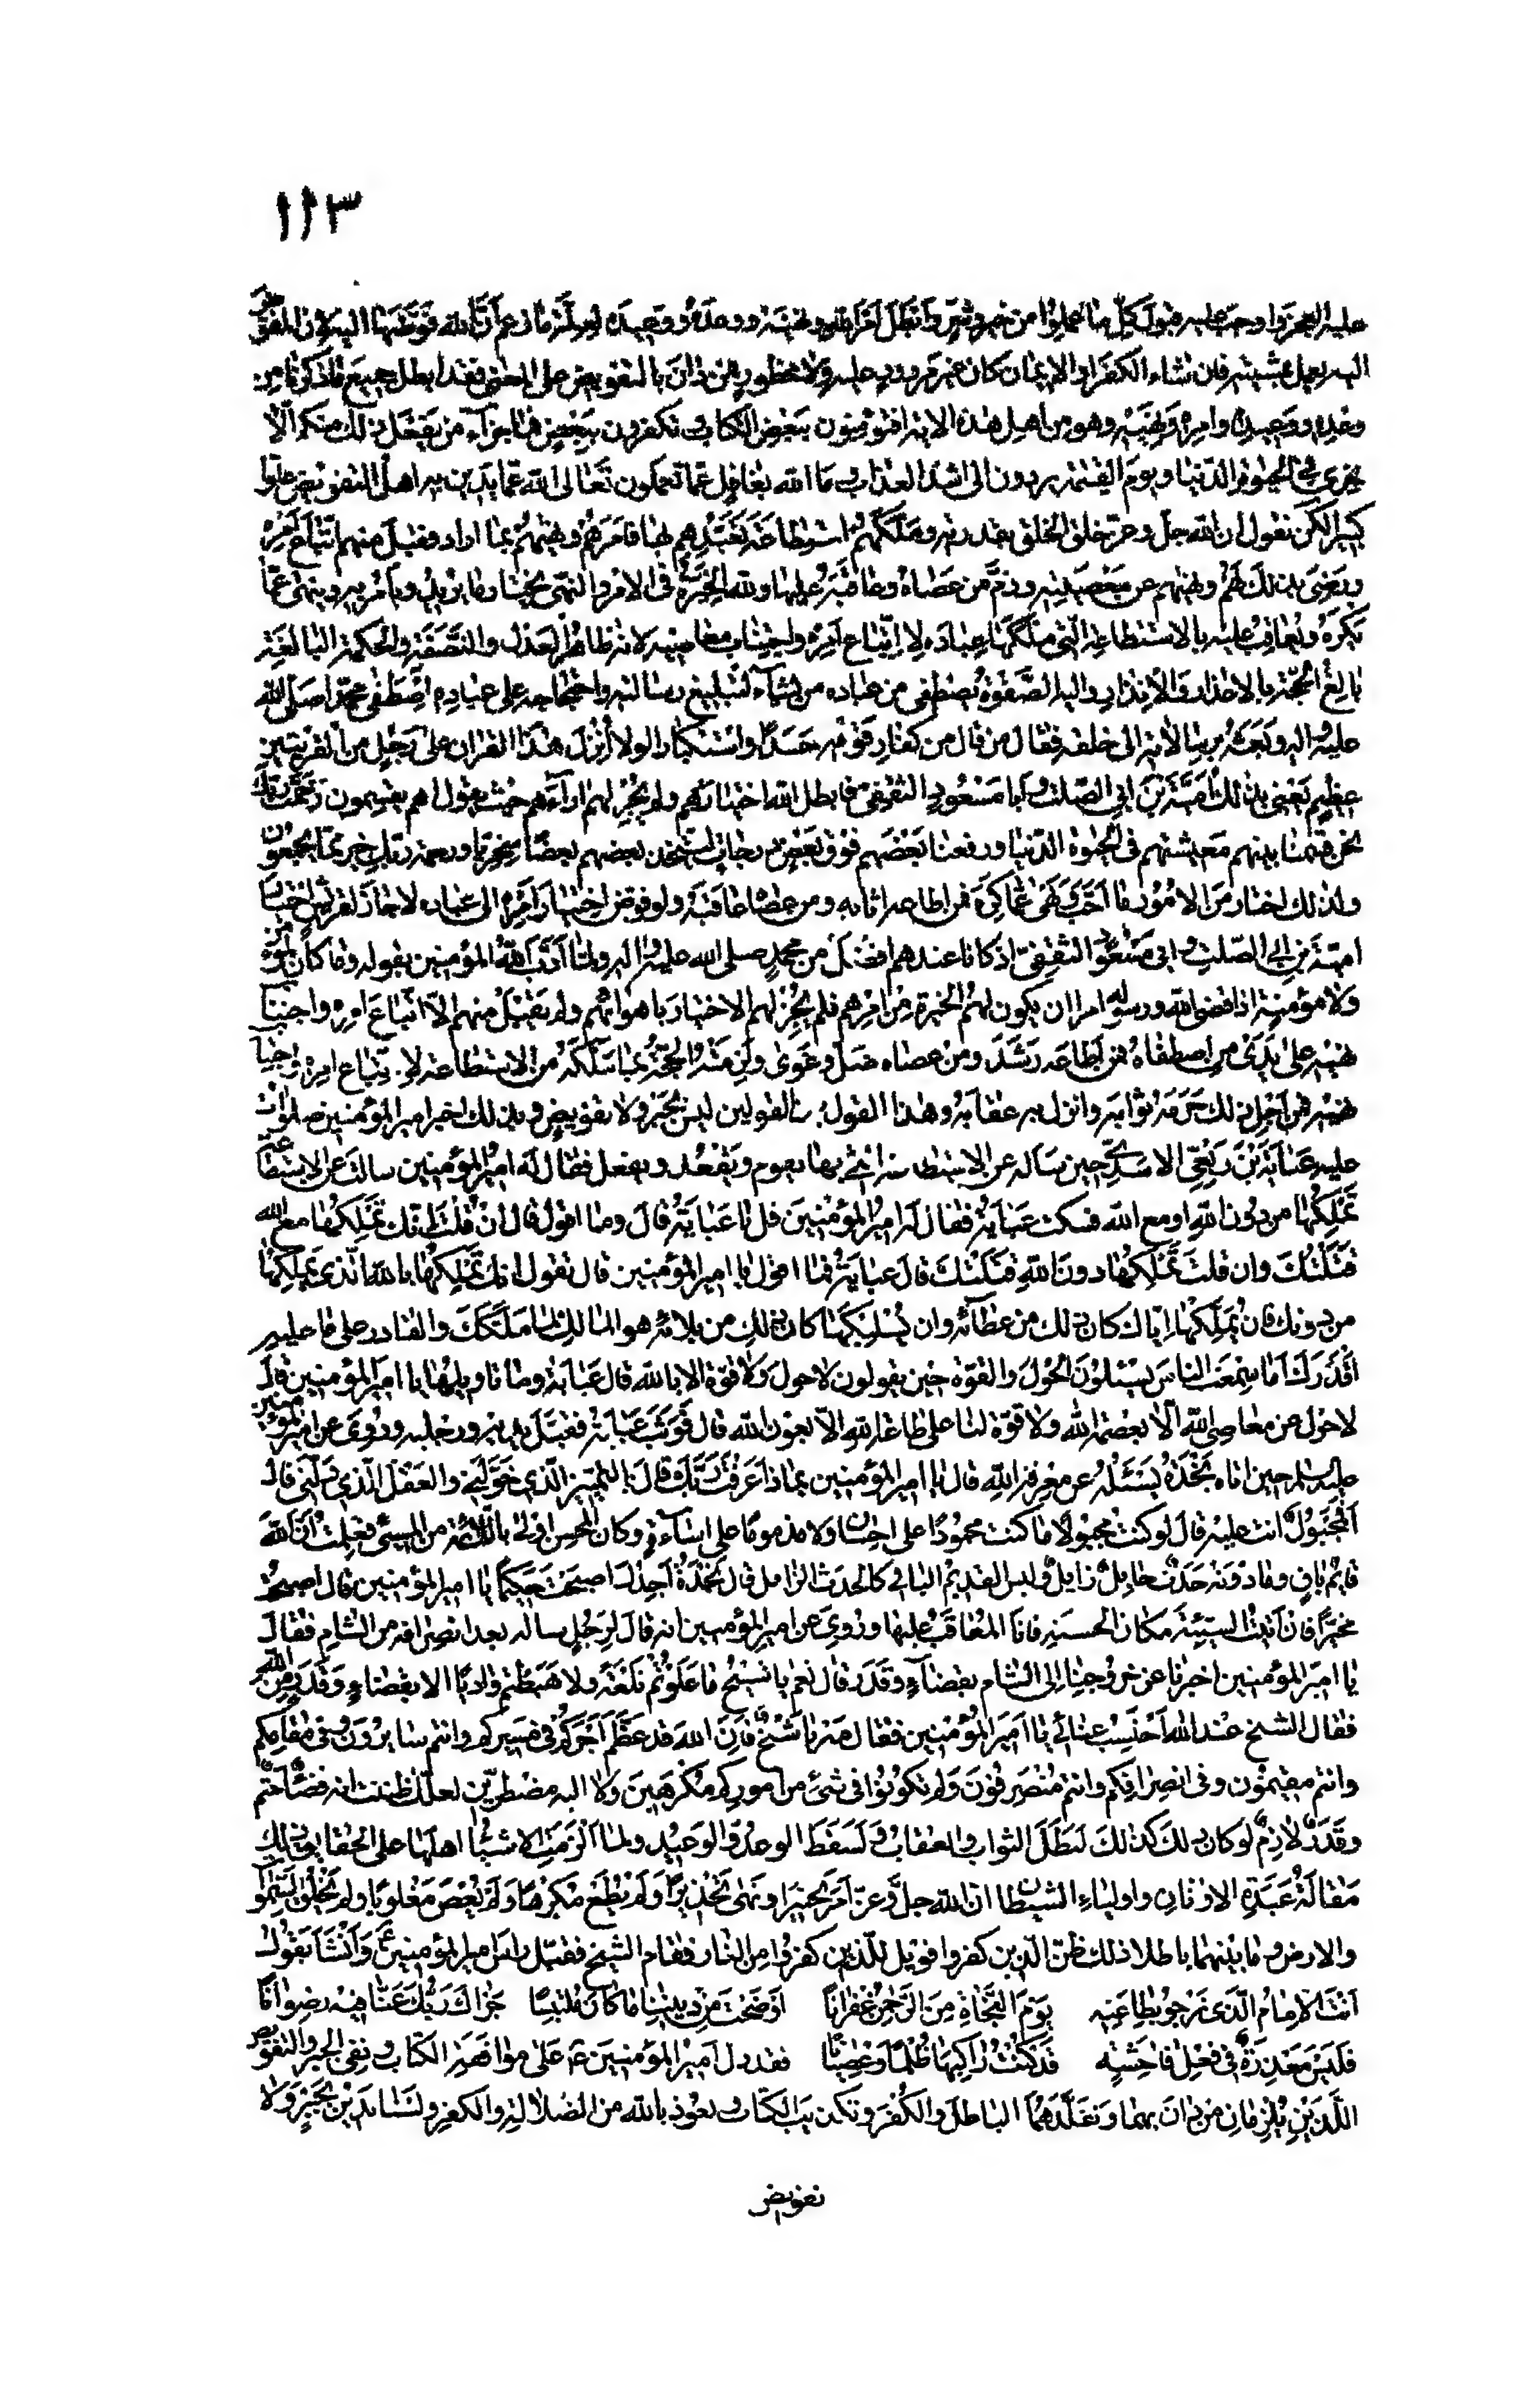 ١١٣
عليه العجز واوجب عليه قبول كل ما عملوا من خير وشر وابطل امر الله ونهيه ووعده ووعيده لعلة ما زعم ان الله فوضها اليه لان المفوض
اليه يعمل بمشيته فان شاء الكفر او الايمان كان غير مردود عليه ولا محظور فمن دان بالتفويض على المعنى فقد ابطل جميع ما ذكرنا من
وعده ووعيده وامره ونهيه وهو من اهل هذه الاية افتؤمنون ببعض الكتاب وتكفرون ببعض فما جزآء من يفعل ذلك منكم الّا
خزى فى الحيوة الدّنيا ويوم القيمة يردون الى اشد العذاب وما الله بغافل عمّا تعملون تعالى الله عمّا يدين به اهل التفويض علوا
كبيرا لكن نقول ان الله جلّ وعزّ خلق الخلق بقدرته وملّكهم استطاعة تعبّدهم بها فامرهم ونهيهم بما اراد فقبل منهم اتّباع امره
ورضى بذلك لهم ونهيهم عن معصيته وذمّ من عصاه وعاقبه عليها ولله الخيرة فى الامر والنهى يختار ما يريد ويأمر به وينهى عمّا
يكره ويعاقب عليه بالاستطاعة الّتى ملّكها عباده لاتّباع امره واجتناب معاصيه لانه ظاهر العدل والنّصفة والحكمة البالغة
بالغ الحجّة بالاعذار والانذار واليه الصّفوة يصطفى من عباده من يشآء لتبليغ رسالته واحتجاجه على عباده اصطفى محمّدا صلى الله
عليه واله وبعثه برسالاته الى خلقه فقال من قال من كفار قومه حسدًا واستكبارا لولا انزل هذا القران على رجل من القريتين
عظيم يعنى بذلك اميّة بن ابى الصّلت وابا مسعود الثقفىّ فابطل الله اختيارهم ولم يجز لهم ارآءهم حيث يقول اهم يقسمون رحمت ربك
نحن قسمنا بينهم معيشتهم فى الحيوة الدّنيا ورفعنا بعضهم فوق بعض درجات ليتّخذ بعضهم بعضًا سخريّا ورحمة ربّك خير ممّا يجمعون
ولذلك اختار من الامور ما احبّ ونهى عمّا كره فمن اطاعه اثابه ومن عصاه عاقبه ولو فوض اختيار امره الى عباده لاجاز لقريش اختيار
اميّة بن ابى الصّلت وابى مسعود الثقفىّ اذ كانا عندهم افضل من محمد صلى الله عليه واله ولمّا ادّب الله المؤمنين بقوله وما كان لمؤمن
ولا مؤمنة اذا قضى الله ورسوله امرا ان يكون لهم الخيرة من امرهم فلم يجز لهم الاختيار باهوائهم ولم يقبل منهم الّا اتّباع امره واجتناب
نهيه على يدى من اصطفاه فمن اطاعه رشد ومن عصاه ضلّ وغوى ولزمته الحجّة بما ملّكه من الاستطاعة لاتّباع امره واجتناب
نهيه فمن اجل ذلك حرمه ثوابه وانزل به عقابه وهذا القول بين القولين ليس بجبر ولا تفويض وبذلك اخبر امير المؤمنين صلوات
عليه عباية بن ربعىّ الاسدىّ حين ساله عن الاستطاعة الّتى بها يقوم ويقعد ويفعل فقال له امير المؤمنين سالت عن الاستطاعة
تملكها من دون الله او مع الله فسكت عباية فقال له امير المؤمنين قل يا عباية قال وما اقول قال ان قلت انّك تملكها مع الله
قتلتك وان قلت تملكها دون الله قتلتك قال عباية فما اقول يا امير المؤمنين قال تقول انك تملكها بالله الّذى يملكها
من دونك فان يملّكها ايّاك كان ذلك من عطآئه وان يسلبكها كان ذلك من بلائه هو المالك لما ملّكك والقادر على ما عليه
اقدرك اما سمعت الناس يسئلون الحول والقوّة حين يقولون لا حول ولا قوّة الا بالله قال عباية وما تاويلها يا امير المؤمنين قال
لا حول عن معاصى الله الّا بعصمة الله ولا قوّة لنا على طاعة الله الّا بعون الله قال فوثب عباية فقبّل يديه ورجليه وروى عن امير المؤمنين
عليه السلم حين اتاه نجدة يسئله عن معرفة الله قال يا امير المؤمنين بماذا عرفت ربّك قال بالتّمييز الّذى خوّلنى والعقل الّذى دلّنى قال
افمجبول انت عليه قال لو كنت مجبولا ما كنت محمودًا على احسان ولا مذموما على اسآءة وكان المحسن اولى باللّائمة من المسىء فعلمت انّ الله
قائم باق وما دونه حدث حايل زايل وليس القديم الباقى كالحدث الزايل قال نجدة اجدك اصبحت حكيماً يا امير المؤمنين قال اصبحت
مخيّرا فان اتيت السيّئة مكان الحسنة فانا المعاقب عليها وروى عن امير المؤمنين انه قال لرجل ساله بعد انصرافه من الشام فقال
يا امير المؤمنين اخبرنا عن خروجنا الى الشام بقضآء وقدر قال نعم يا شيخ ما علوتم تلعة ولا هبطتم واديا الا بقضاء وقدر من الله
فقال الشيخ عند الله احتسب عنائى يا امير المؤمنين فقال مه يا شيخ فانّ الله قد عظّم اجركم فى مسيركم وانتم سايرون وفى مقامكم
وانتم مقيمون وفى انصرافكم وانتم منصرفون ولم تكونوا فى شىء من اموركم مكرهين ولا اليه مضطرّين لعلّك ظننت انه قضاء حتم
وقدر لازم لو كان ذلك كذلك لبطل الثواب والعقاب ولسقط الوعد والوعيد ولما الزمت الاشياء اهلها على الحقايق ذلك
مقالة عبدة الاوثان واولياء الشيطان ان الله جلّ وعزّ امر تخييرا ونهى تحذيرًا ولم يطع مكرها ولم يعص مغلوبا ولم يخلق السموات
والارض وما بينهما باطلا ذلك ظنّ الّذين كفروا فويل للّذين كفروا من النار فقام الشيخ فقبّل راس امير المؤمنين ع وانشأ يقول
انت الامام الّذى نرجو بطاعته يوم النّجاة من الرّحمن غفرانا اوضحت من ديننا ما كان ملتبسا جزاك ربّك عنّا فيه رضوانا
فليس معذرة فى فعل فاحشة قد كنت راكبها ظلما وعصيانا فقد دل امير المؤمنين ع على موافقة الكتاب ونفى الجبر والتفويض
اللّذين يلزمان من دان بهما وتقلّدهما الباطل والكفر وتكذيب الكتاب ونعوذ بالله من الضلالة والكفر ولسنا ندين بجبر ولا
تفويض